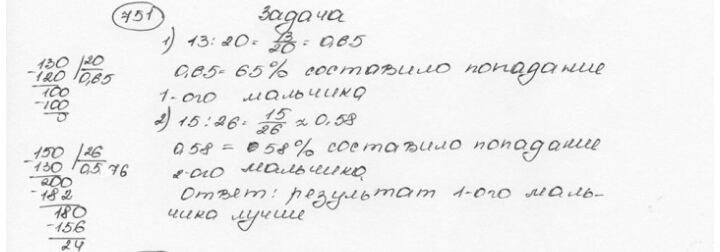 751 Задача
1) 13 : 20 = 13/20 = 0,65
130 | 20
-120 | 0,65
100
-100
0
0,65 = 65% составило попадание
1-ого мальчика
2) 15 : 26 = 15/26 ≈ 0,58
150 | 26
-130 | 0,576
200
-182
180
-156
24
0,58 = 58% составило попадание
2-ого мальчика
Ответ: результат 1-ого маль-
чика лучше